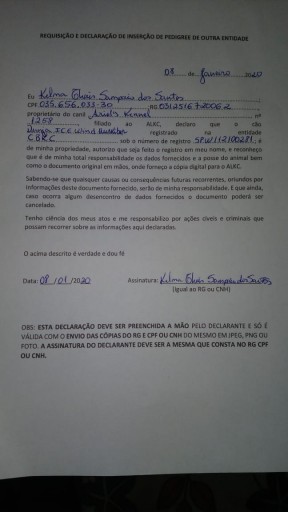 REQUISIÇÃO E DECLARAÇÃO DE INSERÇÃO DE PEDIGREE DE OUTRA ENTIDADE
08 de Janeiro 20
Eu Kilma Sampaio dos Santos,
CPF 035.656.033-30, RG
proprietária do canil Kennel, nº
1258, filiado ao ALKC, declaro que o cão
registrado na entidade
CBKC, sob o número de registro, é
de minha propriedade, autorizo que seja feito o registro em meu nome, e reconheço
que é de minha total responsabilidade os dados fornecidos e a posse do animal bem
como o documento original em mãos, onde forneço a cópia digital para o ALKC.
Sabendo-se que quaisquer causas ou consequências futuras recorrentes, oriundos por
informações deste documento fornecido, serão de minha responsabilidade. E que ainda,
caso ocorra algum desencontro de dados fornecidos o documento poderá ser
cancelado.
Tenho ciência dos meus atos e me responsabilizo por ações cíveis e criminais que
possam recorrer sobre as informações aqui declaradas.
O acima descrito é verdade e dou fé
Data: 08/01/2020 Assinatura: Kilma Sampaio dos Santos
(Igual ao RG ou CNH)
OBS: ESTA DECLARAÇÃO DEVE SER PREENCHIDA A MÃO PELO DECLARANTE E SÓ É
VÁLIDA COM O ENVIO DAS CÓPIAS DO RG E CPF OU CNH DO MESMO EM JPEG, PNG OU
FOTO. A ASSINATURA DO DECLARANTE DEVE SER A MESMA QUE CONSTA NO RG CPF
OU CNH.